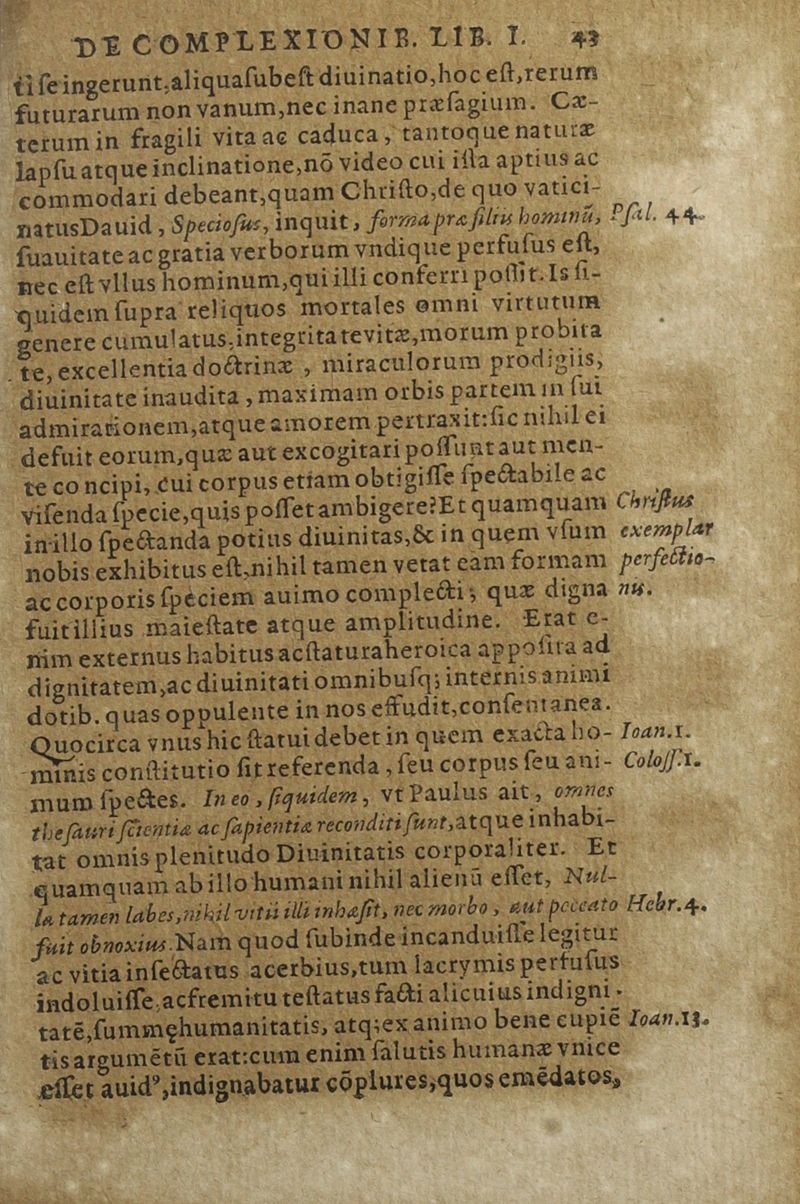 DE COMPLEXIONIB. LIB. I. 43
ti ſe ingerunt, aliqua ſubeſt diuinatio, hoc eſt, rerum
futurarum non vanum, nec inane præſagium. Cæ-
terum in fragili vita ac caduca, tantoque naturæ
lapſu atque inclinatione, nō video cui illa aptius ac
commodari debeant, quam Chriſto, de quo vatici-
natus Dauid, Specioſus, inquit, forma præ filiis hominū, Pſal. 44.
ſuauitate ac gratia verborum vndique perfuſus eſt,
nec eſt vllus hominum, qui illi conferri poſſit. Is ſi-
quidem ſupra reliquos mortales omni virtutum
genere cumulatus, integritate vitæ, morum probita
te, excellentia doctrinæ, miraculorum prodigiis,
diuinitate inaudita, maximam orbis partem in ſui
admirationem, atque amorem pertraxit: ſic nihil ei
defuit eorum, quæ aut excogitari poſſunt aut men-
te co ncipi, cui corpus etiam obtigiſſe ſpectabile ac
viſenda ſpecie, quis poſſet ambigere? Et quamquam Chriſtus
in illo ſpectanda potius diuinitas, & in quem vſum exemplar
nobis exhibitus eſt, nihil tamen vetat eam formam perfectio-
ac corporis ſpeciem auimo complecti; quæ digna nis.
fuit illius maieſtate atque amplitudine. Erat e-
nim externus habitus ac ſtatura heroica appoſita ad
dignitatem, ac diuinitati omnibuſq; internis animi
dotib. quas oppulente in nos effudit, conſentanea.
Quocirca vnus hic ſtatui debet in quem exacta ho- Ioan.1.
minis conſtitutio ſit referenda, ſeu corpus ſeu ani- Coloſſ.1.
mum ſpectes. In eo, ſiquidem, vt Paulus ait, omnes
theſauri ſcientiæ ac ſapientiæ reconditi ſunt, atque inhabi-
tat omnis plenitudo Diuinitatis corporaliter. Et
quamquam ab illo humani nihil alienū eſſet, Nul-
la tamen labes, nihil vitii illi inhæſit, nec morbo, aut peccato Hebr.4.
fuit obnoxius. Nam quod ſubinde incanduiſſe legitur
ac vitia inſectatus acerbius, tum lacrymis perfuſus
indoluiſſe, ac fremitu teſtatus facti alicuius indigni-
tatē, ſummę humanitatis, atq; ex animo bene cupiē Ioan.13.
tis argumētū erat: cum enim ſalutis humanæ vnice
eſſet auidꝰ, indignabatur cōplures, quos emēdatos,